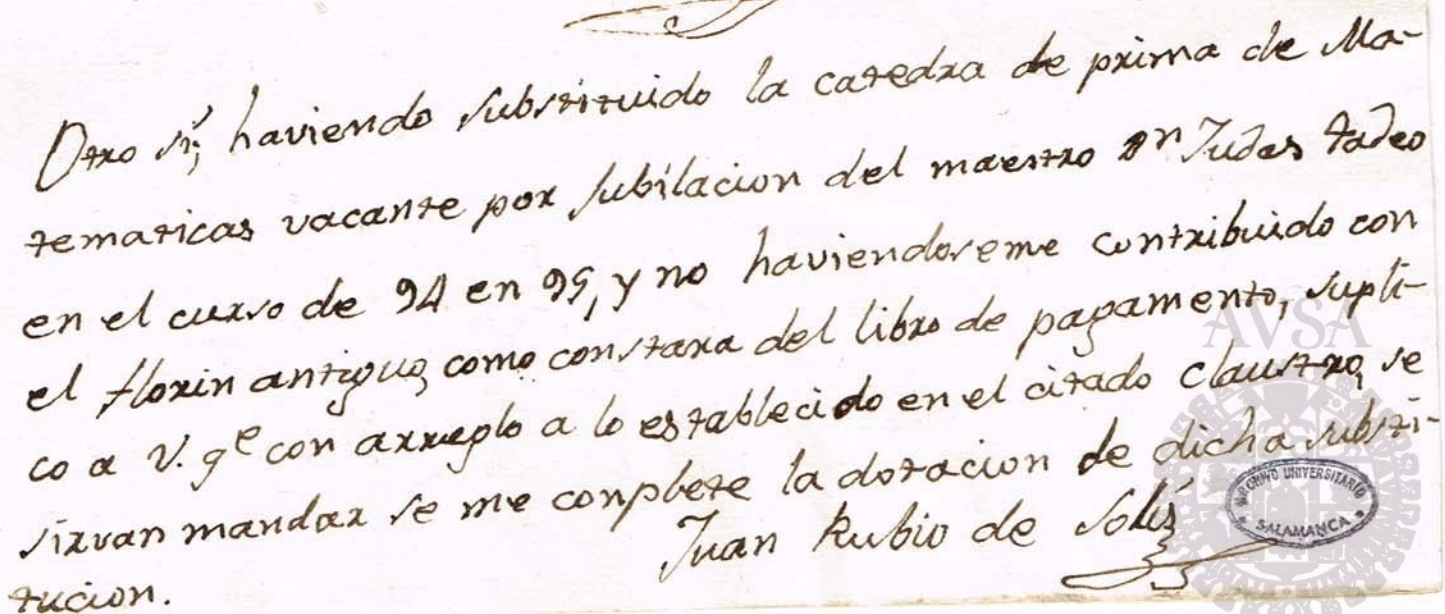 Otro sí, haviendo substituido la catedra de prima de Ma-
tematicas vacante por Jubilacion del maestro Dn Judas tadeo
en el curso de 94 en 95, y no haviendoseme contribuido con
el florin antiguo, como constara del libro de pagamento, supli-
co a V. qe con arreglo a lo establecido en el citado claustro, se
sirvan mandar se me conplete la dotacion de dicha substi-
tucion.
Juan Rubio de Solis
AVSA
ARCHIVO UNIVERSITARIO
SALAMANCA